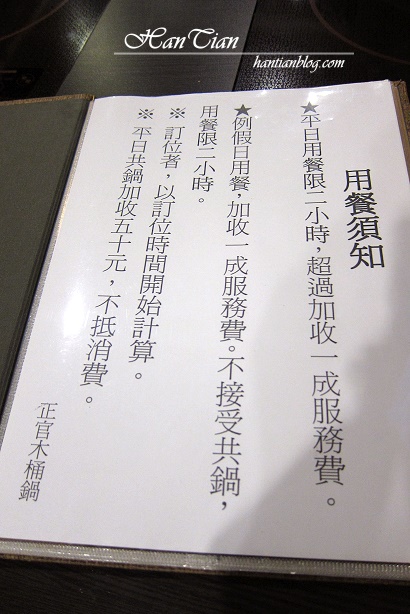 HanTian
hantianblog.com
用餐須知
★平日用餐限二小時，超過加收一成服務費。
★例假日用餐，加收一成服務費。不接受共鍋，
用餐限二小時。
※ 訂位者，以訂位時間開始計算。
※ 平日共鍋加收五十元，不抵消費。
正官木桶鍋